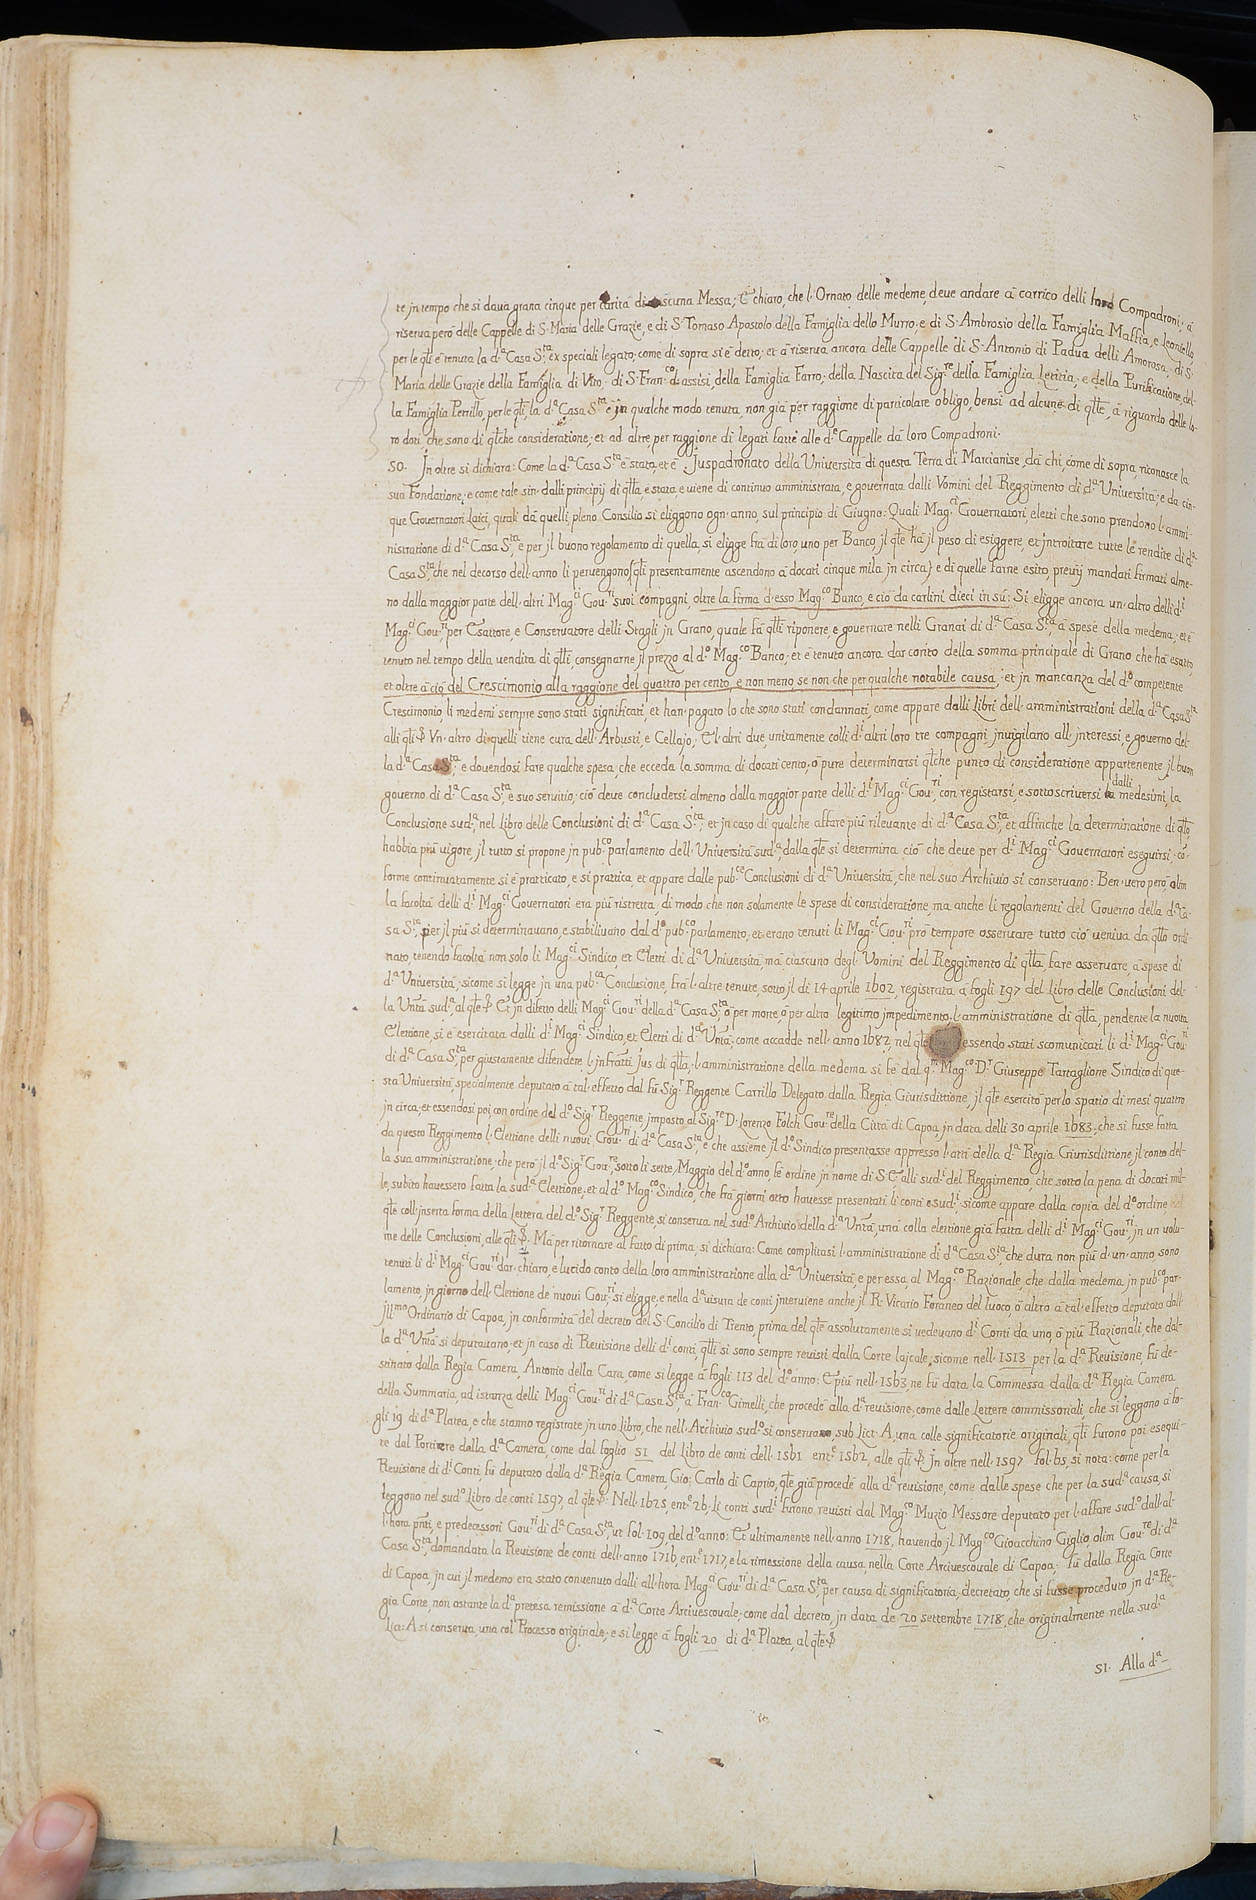 te jn tempo che si daua grana cinque per carità di ciascuna Messa; E' chiaro, che l'Ornato delle medeme, deue andare à carrico delli loro Compadroni; à
riserua però delle Cappelle di S. Maria delle Grazie, e di S. Tomaso Apostolo della Famiglia dello Murro, e di S. Ambrosio della Famiglia Maffia, e Leontello,
per le qli è tenuta la d.a Casa S.ta ex speciali legato, come di sopra si è detto; et à riserua ancora delle Cappelle di S. Antonio di Padua delli Amorosa; di S.
Maria delle Grazie della Famiglia di Vito; di S. Fran.co d'assisi, della Famiglia Farro; della Nascita del Sig.re della Famiglia Letitia; e della Purificatione, del-
la Famiglia Perrillo, per le qli, la d.a Casa S.ta è jn qualche modo tenuta, non già per raggione di particolare obligo, bensì ad alcune di qlle, à riguardo delle lo-
ro doti che sono di qlche consideratione; et ad altre, per raggione di legati fatti alle d.e Cappelle dà loro Compadroni.
50. Jn oltre si dichiara: Come la d.a Casa S.ta è stata, et è Juspadronato della Università di questa Terra di Marcianise, dà chi, come di sopra, riconosce la
sua Fondatione, e come tale sin dalli principij di qlla, è stata, e uiene di continuo amministrata, e gouernata dalli Vomini del Reggimento di d.a Università; e da cin-
que Gouernatori Laici, quali dà quelli, pleno Consilio si eliggono ogn'anno, sul principio di Giugno: Quali Mag.ci Gouernatori, eletti che sono, prendono l'ammi-
nistratione di d.a Casa S.ta, e per jl buono regolamento di quella, si eligge frà di loro, uno per Banco, jl qle hà jl peso di esiggere, et jntroitare tutte le rendite di d.a
Casa S.ta, che nel decorso dell'anno li peruengono (qli presentamente ascendono à docati cinque mila jn circa) e di quelle farne esito, preuij mandati firmati alme-
no dalla maggior parte dell'altri Mag.ci Gou.ri suoi compagni, oltre la firma d'esso Mag.co Banco, e ciò da carlini dieci in sù: Si eligge ancora un'altro delli d.i
Mag.ci Gou.ri per Esattore, e Conseruatore delli Stagli jn Grano, quale fà qlli riponere, e gouernare nelli Granai di d.a Casa S.ta, à spese della medema; et è
tenuto nel tempo della uendita di qlli consegnarne jl prezzo al d.o Mag.co Banco; et è tenuto ancora dar conto della somma principale di Grano che hà esatto,
et oltre à ciò del Crescimonio alla raggione del quattro per cento, e non meno, se non che per qualche notabile causa; et jn mancanza del d.o competente
Crescimonio, li medemi sempre sono stati significati, et han pagato lo che sono stati condannati, come appare dalli Libri dell'amministrationi della d.a Casa S.ta
alli qli § Vn'altro di quelli tiene cura dell'Arbusti, e Cellajo; E l'altri due, unitamente colli d.i altri loro tre compagni, jnuigilano all'jnteressi, e gouerno del-
la d.a Casa S.ta; e douendosi fare qualche spesa, che ecceda la somma di docati cento; ò pure determinarsi qlche punto di consideratione appartenente jl buon
gouerno di d.a Casa S.ta, e suo seruitio; ciò deue concludersi almeno dalla maggior parte delli d.i Mag.ci Gou.ri, con registarsi, e sottoscriuersi dalli medesimi, la
Conclusione sud.a, nel Libro delle Conclusioni di d.a Casa S.ta; et jn caso di qualche affare più rileuante di d.a Casa S.ta, et affinche la determinatione di qllo,
habbia più uigore, jl tutto si propone jn pub.co parlamento dell'Università sud.a, dalla qle si determina ciò che deue per d.i Mag.ci Gouernatori eseguirsi; cò-
forme continuatamente si è pratticato, e si prattica, et appare dalle pub.ce Conclusioni di d.a Università, che nel suo Archiuio si conseruano: Ben uero però, olim
la facoltà delli d.i Mag.ci Gouernatori era più ristretta, di modo che non solamente le spese di consideratione, ma anche li regolamenti del Gouerno della d.a Ca-
sa S.ta, per jl più si determinauano, e stabiliuano dal d.o pub.co parlamento, et erano tenuti li Mag.ci Gou.ri pro tempore osseruare tutto ciò ueniua da qllo ordi-
nato, tenendo facoltà non solo li Mag.ci Sindico, et Eletti di d.a Università, mà ciascuno degl'Vomini del Reggimento di qlla, fare osseruare, à spese di
d.a Università; sicome si legge jn una pub.ca Conclusione, frà l'altre tenute, sotto jl di 14 aprile 1602, registrata à fogli 197 del Libro delle Conclusioni del-
la Unità sud.a, al qle § Et jn difetto delli Mag.ci Gou.ri della d.a Casa S.ta ò per morte, ò per altro legitimo jmpedimento, l'amministratione di qlla, pendente la nuoua
Elettione, si è esercitata dalli d.i Mag.ci Sindico, et Eletti di d.a Unità; come accadde nell'anno 1682, nel qle essendo stati scomunicati li d.i Mag.ci Gou.ri
di d.a Casa S.ta, per giustamente difendere l'jnfratti Jus di qlla, l'amministratione della medema si fè dal q.m Mag.co D.r Giuseppe Tartaglione Sindico di que-
sta Università, specialmente deputato à tal effetto dal fù Sig.r Reggente Carrillo Delegato dalla Regia Giurisdittione, jl qle esercità per lo spatio di mesi quattro
jn circa, et essendosi poi, con ordine del d.o Sig.r Reggente, jmposto al Sig.re D. Lorenzo Folch Gou.re della Città di Capoa, jn data delli 30 aprile 1683, che si fusse fatta
da questo Reggimento l'Elettione delli nuoui Gou.ri di d.a Casa S.ta, e che assieme jl d.o Sindico presentasse appresso l'atti della d.a Regia Giurisdittione, jl conto del-
la sua amministratione; che però jl d.o Sig.r Gou.re sotto li sette Maggio del d.o anno, fè ordine jn nome di S. E. alli sud.i del Reggimento, che sotto la pena di docati mil-
le, subito hauessero fatta la sud.a Elettione; et al d.o Mag.co Sindico, che frà giorni otto hauesse presentati li conti sud.i, sicome appare dalla copia del d.o ordine, del
qle coll'jnserta forma della Lettera del d.o Sig.r Reggente, si conserua nel sud.o Archiuio della d.a Unità, unà colla elettione già fatta delli d.i Mag.ci Gou.ri, jn un uolu-
me delle Conclusioni, alle qli §. Mà per ritornare al fatto di prima; si dichiara: Come complitasi l'amministratione di d.a Casa S.ta, che dura non più d'un'anno, sono
tenuti li d.i Mag.ci Gou.ri dar chiaro, e lucido conto della loro amministratione alla d.a Università, e per essa, al Mag.co Razionale, che dalla medema, jn pub.co par-
lamento, jn giorno dell'Elettione de nuoui Gou.ri si eligge, e nella d.a uisura de conti jnteruiene anche jl R. Vicario Foraneo del luoco, ò altro à tal effetto deputato dall'
Jll.mo Ordinario di Capoa, jn conformità del decreto del S. Concilio di Trento, prima del qle assolutamente si uedeuano d.i Conti da uno, ò più Razionali, che dal-
la d.a Unità si deputauano; et jn caso di Reuisione delli d.i conti, qlli si sono sempre reuisti dalla Corte lajcale; sicome nell' 1513 per la d.a Reuisione, fù de-
stinato dalla Regia Camera, Antonio della Cara, come si legge à fogli 113 del d.o anno: E più nell' 1563, ne fù data la Commessa dalla d.a Regia Camera
della Summaria, ad istanza delli Mag.ci Gou.ri di d.a Casa S.ta, à Fran.co Gimelli, che procedè alla d.a reuisione, come dalle Lettere commissoriali, che si leggono à fo-
gli 19 di d.a Platea, e che stanno registrate jn uno Libro, che nell'Archiuio sud.o si conseruano, sub Lict. A, una colle significatorie originali, qli furono poi esequi-
te dal Portiere dalla d.a Camera, come dal foglio 51 del Libro de conti dell' 1561 ent.e 1562, alle qli § Jn oltre nell' 1597 fol. 65, si nota: come per la
Reuisione di d.i Conti, fù deputato dalla d.a Regia Camera, Gio: Carlo di Caprio, qle già procedè alla d.a reuisione, come dalle spese che per la sud.a causa, si
leggono nel sud.o Libro de conti 1597 al qle §: Nell' 1625, ent.e 26, Li conti sud.i furono reuisti dal Mag.co Muzio Messore deputato per l'affare sud.o dall'al-
l'hora pnti, e predecessori Gou.ri di d.a Casa S.ta, ut fol. 109, del d.o anno: Et ultimamente nell'anno 1718, hauendo jl Mag.co Gioacchino Giglio olim Gou.re di d.a
Casa S.ta, domandata la Reuisione de conti dell'anno 1716, ent.e 1717, e la rimessione della causa, nella Corte Arciuescouale di Capoa; Fù dalla Regia Corte
di Capoa, jn cui jl medemo era stato conuenuto dalli all'hora Mag.ci Gou.ri di d.a Casa S.ta per causa di significatoria, decretato, che si fusse proceduto jn d.a Re-
gia Corte, non ostante la d.a pretesa remissione à d.a Corte Arciuescouale; come dal decreto, jn data de 20 settembre 1718, che originalmente nella sud.a
Lic: A si conserua, una col Processo originale; e si legge à fogli 20 di d.a Platea, al qle §
51. Alla d.a